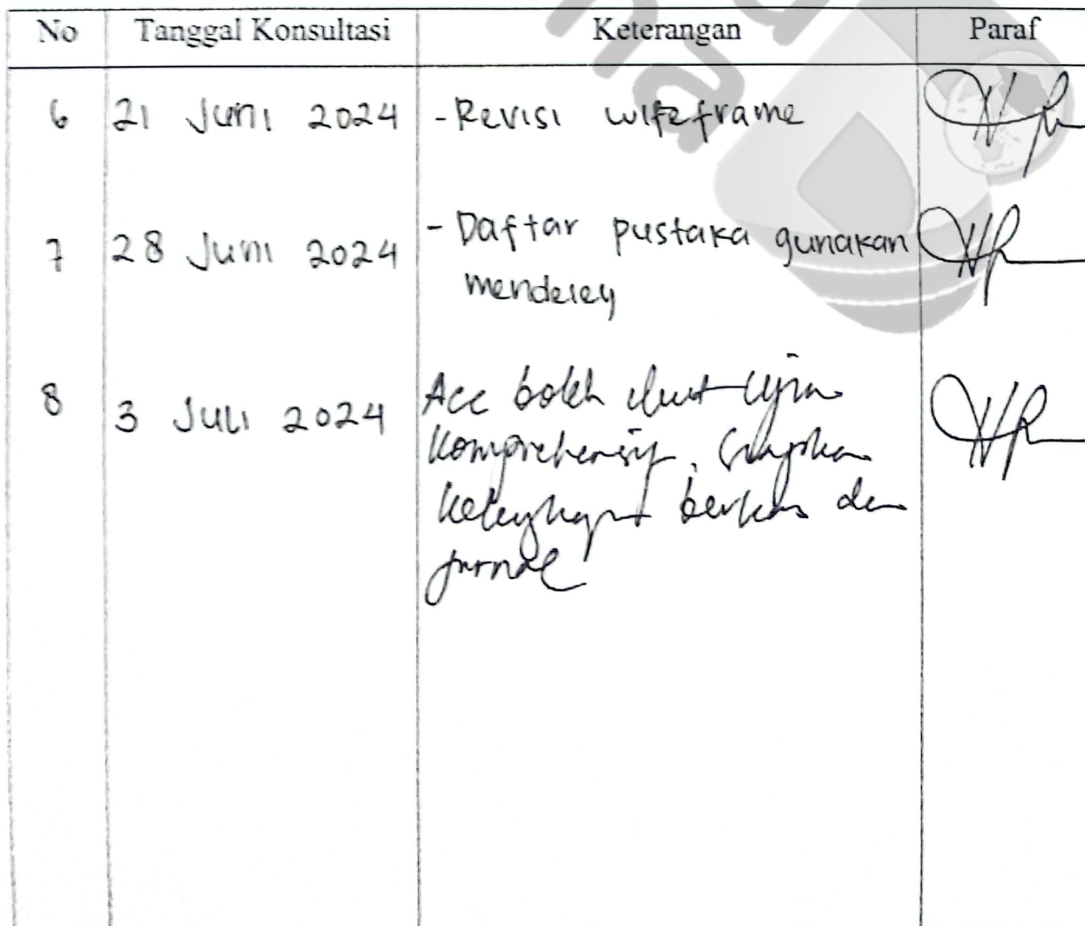 No Tanggal Konsultasi Keterangan Paraf
6 21 Juni 2024 - Revisi wireframe
7 28 Juni 2024 - Daftar pustaka gunakan
mendeley
8 3 Juli 2024 Acc boleh ikut ujian
komprehensif, siapkan
kelengkapan berkas dan
jurnal